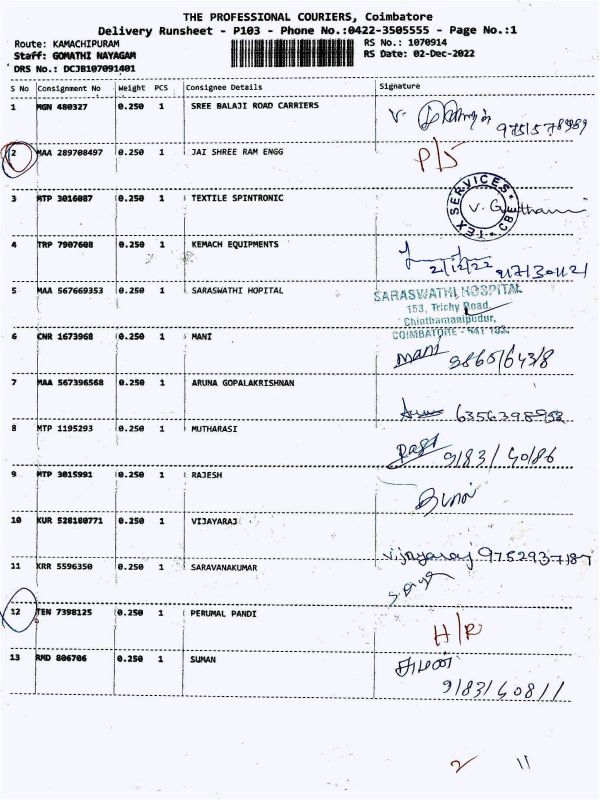 THE PROFESSIONAL COURIERS, Coimbatore
Delivery Runsheet - P103 - Phone No.:0422-3505555 - Page No.:1
Route: KAMACHIPURAM RS No.: 1070914
Staff: GOMATHI NAYAGAM RS Date: 02-Dec-2022
DRS No.: DCJB107091401
S No Consignment No Weight PCS Consignee Details Signature
1 MGN 480327 0.250 1 SREE BALAJI ROAD CARRIERS
V.
2 MAA 289708497 0.250 1 JAI SHREE RAM ENGG P/S
3 MTP 3016087 0.250 1 TEXTILE SPINTRONIC
TEX SERVICES * CBE *
V. Geethamni
4 TRP 7907608 0.250 1 KEMACH EQUIPMENTS
2/12/22
5 MAA 567669353 0.250 1 SARASWATHI HOPITAL
SARASWATHI HOSPITAL
153, Trichy Road,
Chinthamanipudur,
COIMBATORE - 641 103.
6 CNR 1673968 0.250 1 MANI
Mani 9865164318
7 MAA 567396568 0.250 1 ARUNA GOPALAKRISHNAN
6356398958
8 MTP 1195293 0.250 1 MUTHARASI
9183140186
9 MTP 3015991 0.250 1 RAJESH
10 KUR 528180771 0.250 1 VIJAYARAJ
Vijayaraj 9752937187
11 KRR 5596350 0.250 1 SARAVANAKUMAR
12 TEN 7398125 0.250 1 PERUMAL PANDI
H/R
13 RMD 806706 0.250 1 SUMAN
சுமன்
9183140811
2 11